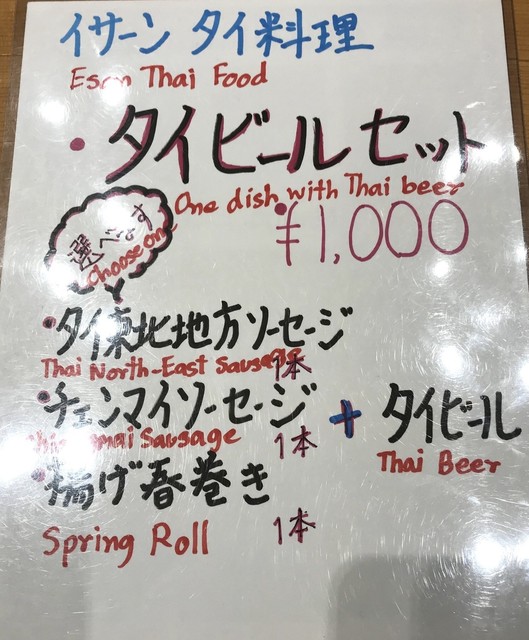 イサーン タイ料理
Esan Thai Food
・タイビールセット
One dish with Thai beer
¥1,000
選べます
choose one
・タイ東北地方ソーセージ
Thai North-East Sausage
1本
・チェンマイソーセージ
Chiangmai Sausage
1本
+ タイビール
Thai Beer
・揚げ春巻き
Spring Roll
1本